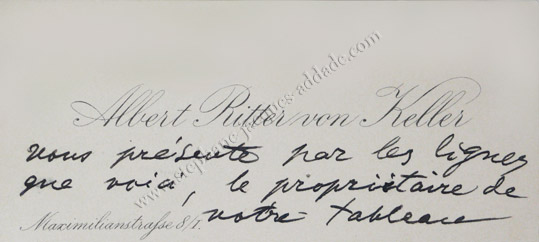 Albert Ritter von Keller
vous présente par les lignes
que voici, le propriétaire de
Maximilianstraße 8/I. votre tableau
www.stephane-jacques-addade.com